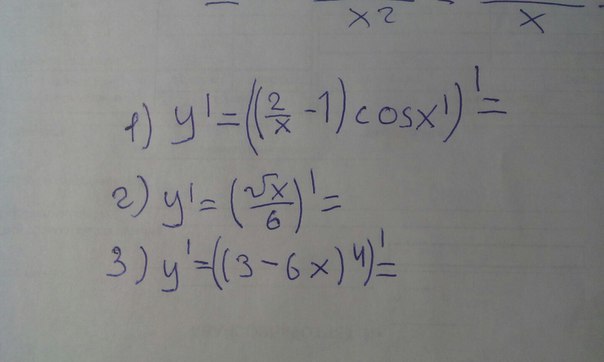 x2 x
1) y' = ((2/x - 1) cosx')' =
2) y' = (√x/6)' =
3) y' = ((3 - 6x)4)' =